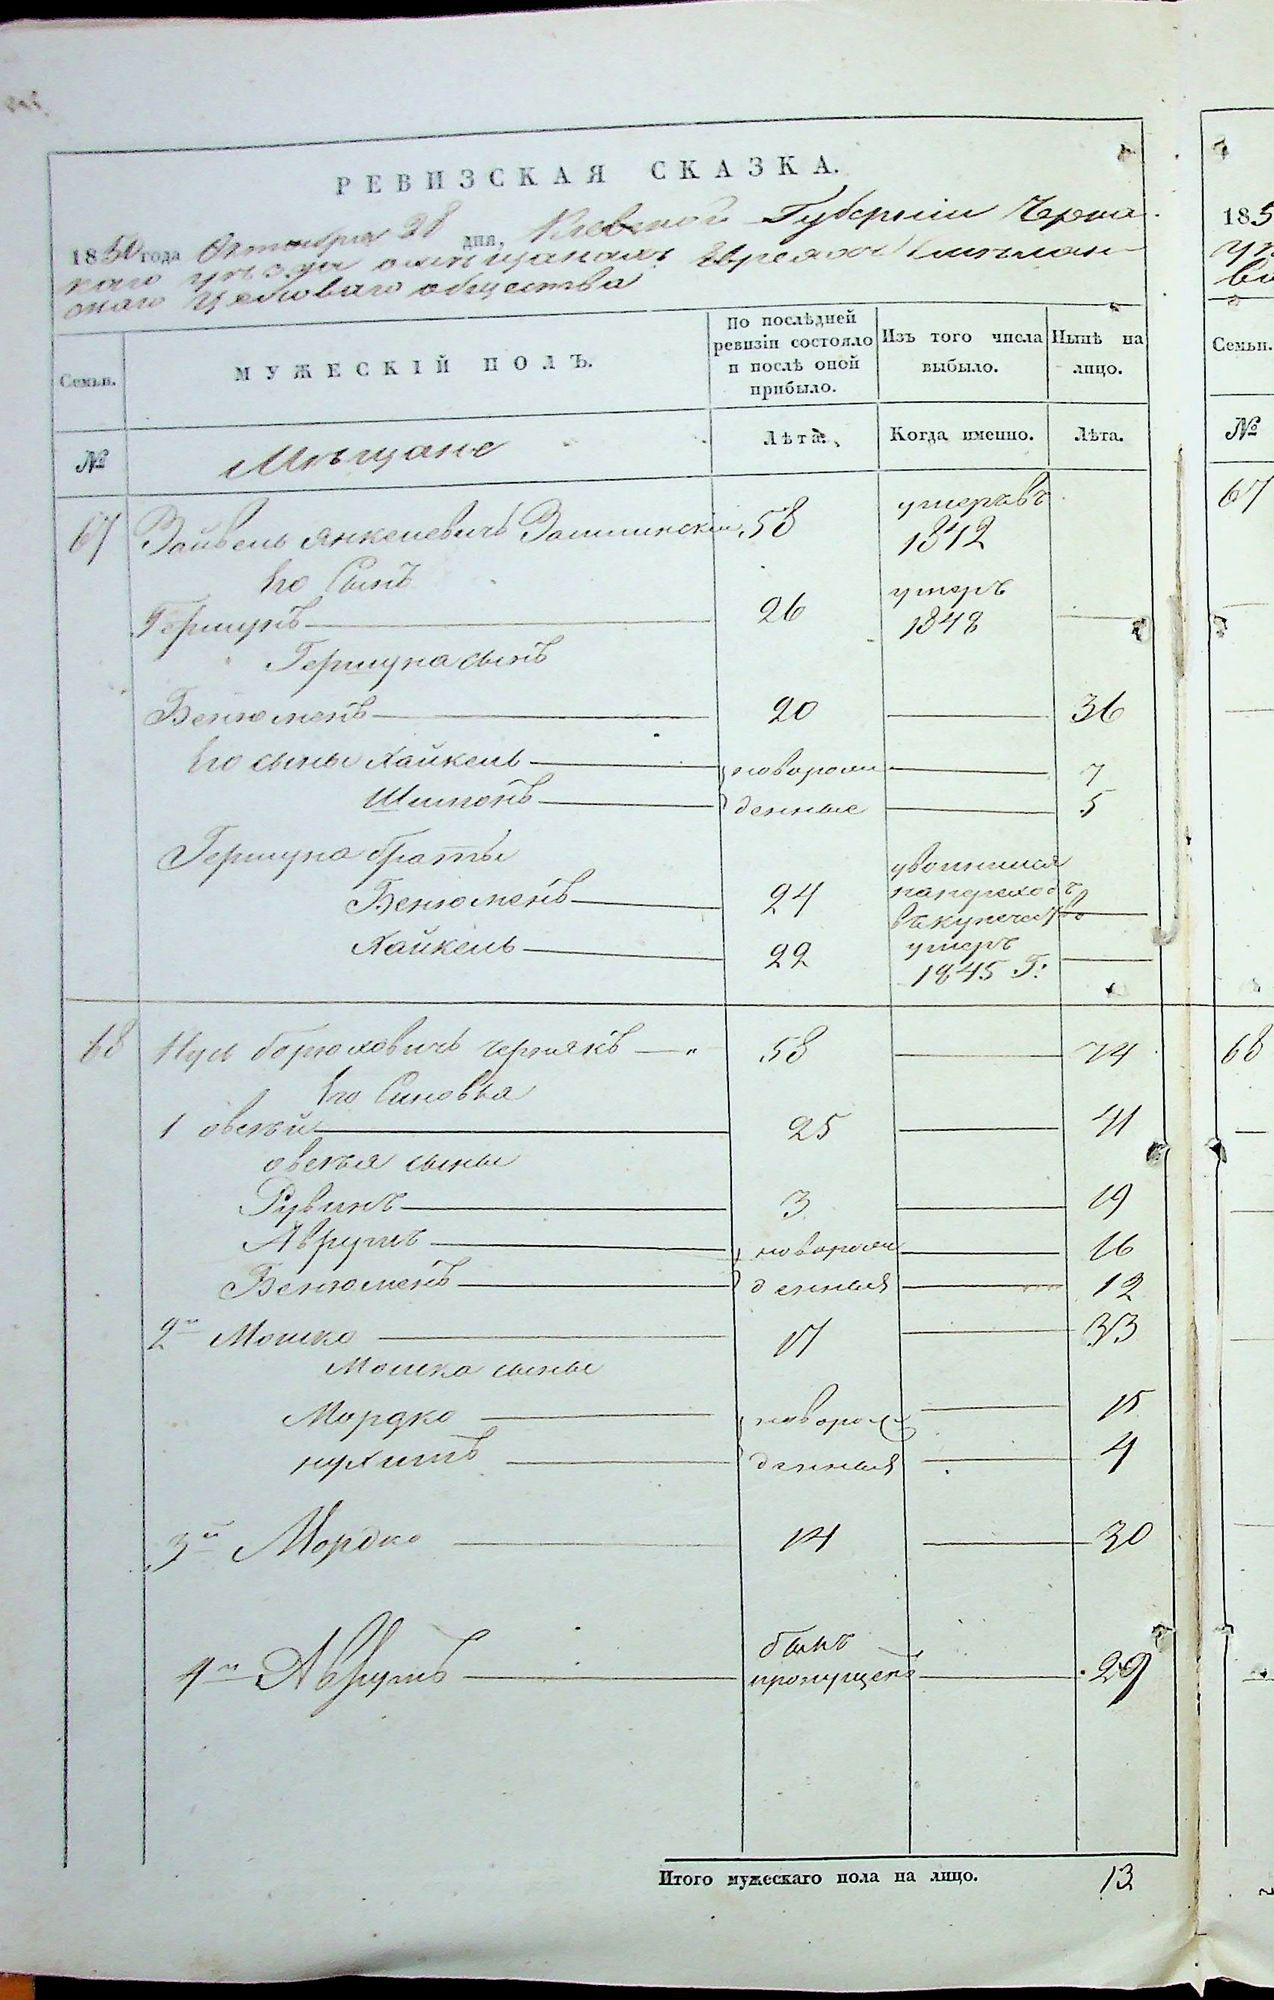 РЕВИЗСКАЯ СКАЗКА.
1850 года Октября 28 дня, Киевской Губернии Черка
каго уѣзда о мѣщанахъ Евреяхъ
скаго Цеховаго общества
Семьи. МУЖЕСКІЙ ПОЛЪ. По послѣдней ревизіи состояло и послѣ оной прибыло. Изъ того числа выбыло. Нынѣ на лицо.
№ Мѣщане Лѣта. Когда именно. Лѣта.
67 Зайвель Янкелевичъ 58 умеръ въ 1842
Его Сынъ
Гершунъ 26 умеръ 1848
Гершуна сынъ
Бенюменъ 20 36
Его сыны Хайкель новорож 7
Шимонъ денные 5
Гершуна братъя
Бенюменъ 24 въ купечество
Хайкель 22 умеръ 1845 г:
68 Нусь Борюховичъ Чернякъ 58 74
Его Синовья
1 Овсѣй 25 41
Овсѣя сыны
Рувинъ 3 19
Аврумъ новорож 16
Бенюменъ денныя 12
2й Мошко 17 33
Мошка сыны
Мордко новорож 15
Нухимъ денныя 4
3й Мордко 14 30
4й Аврумъ былъ пропущенъ 29
Итого мужескаго пола на лицо. 13
185
Семьи.
№
67
68